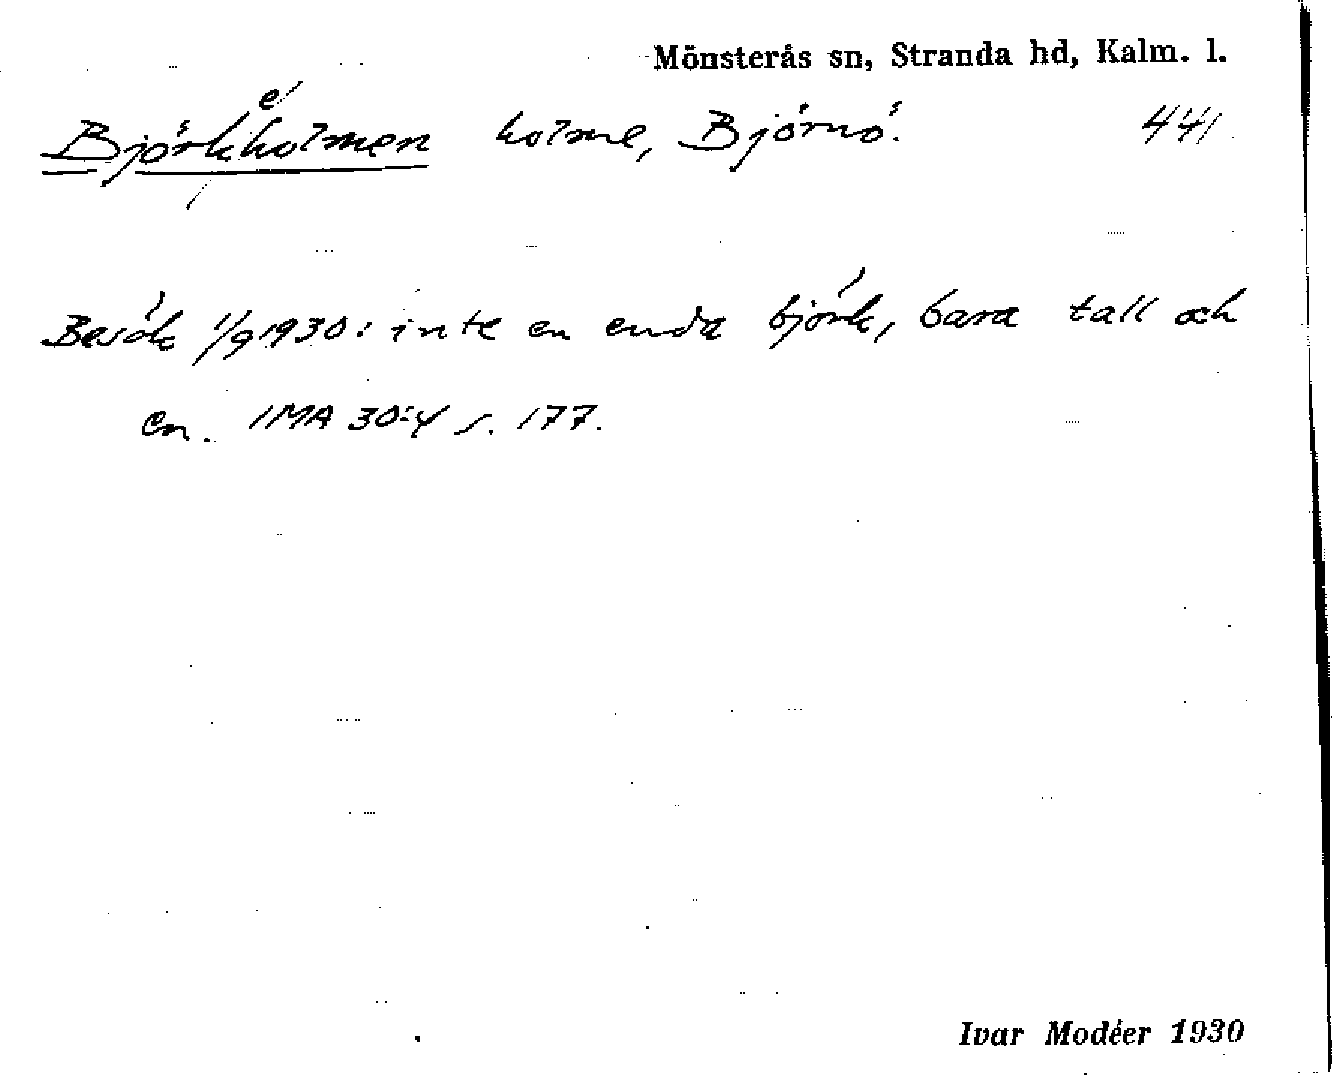 Mönsterås sn, Stranda hd, Kalm. l.
Björkeholmen holme, Björnö. 441
Besök 1/9 1930: inte en enda björk, bara tall och
en. IMA 30:4 s. 177.
Ivar Modéer 1930